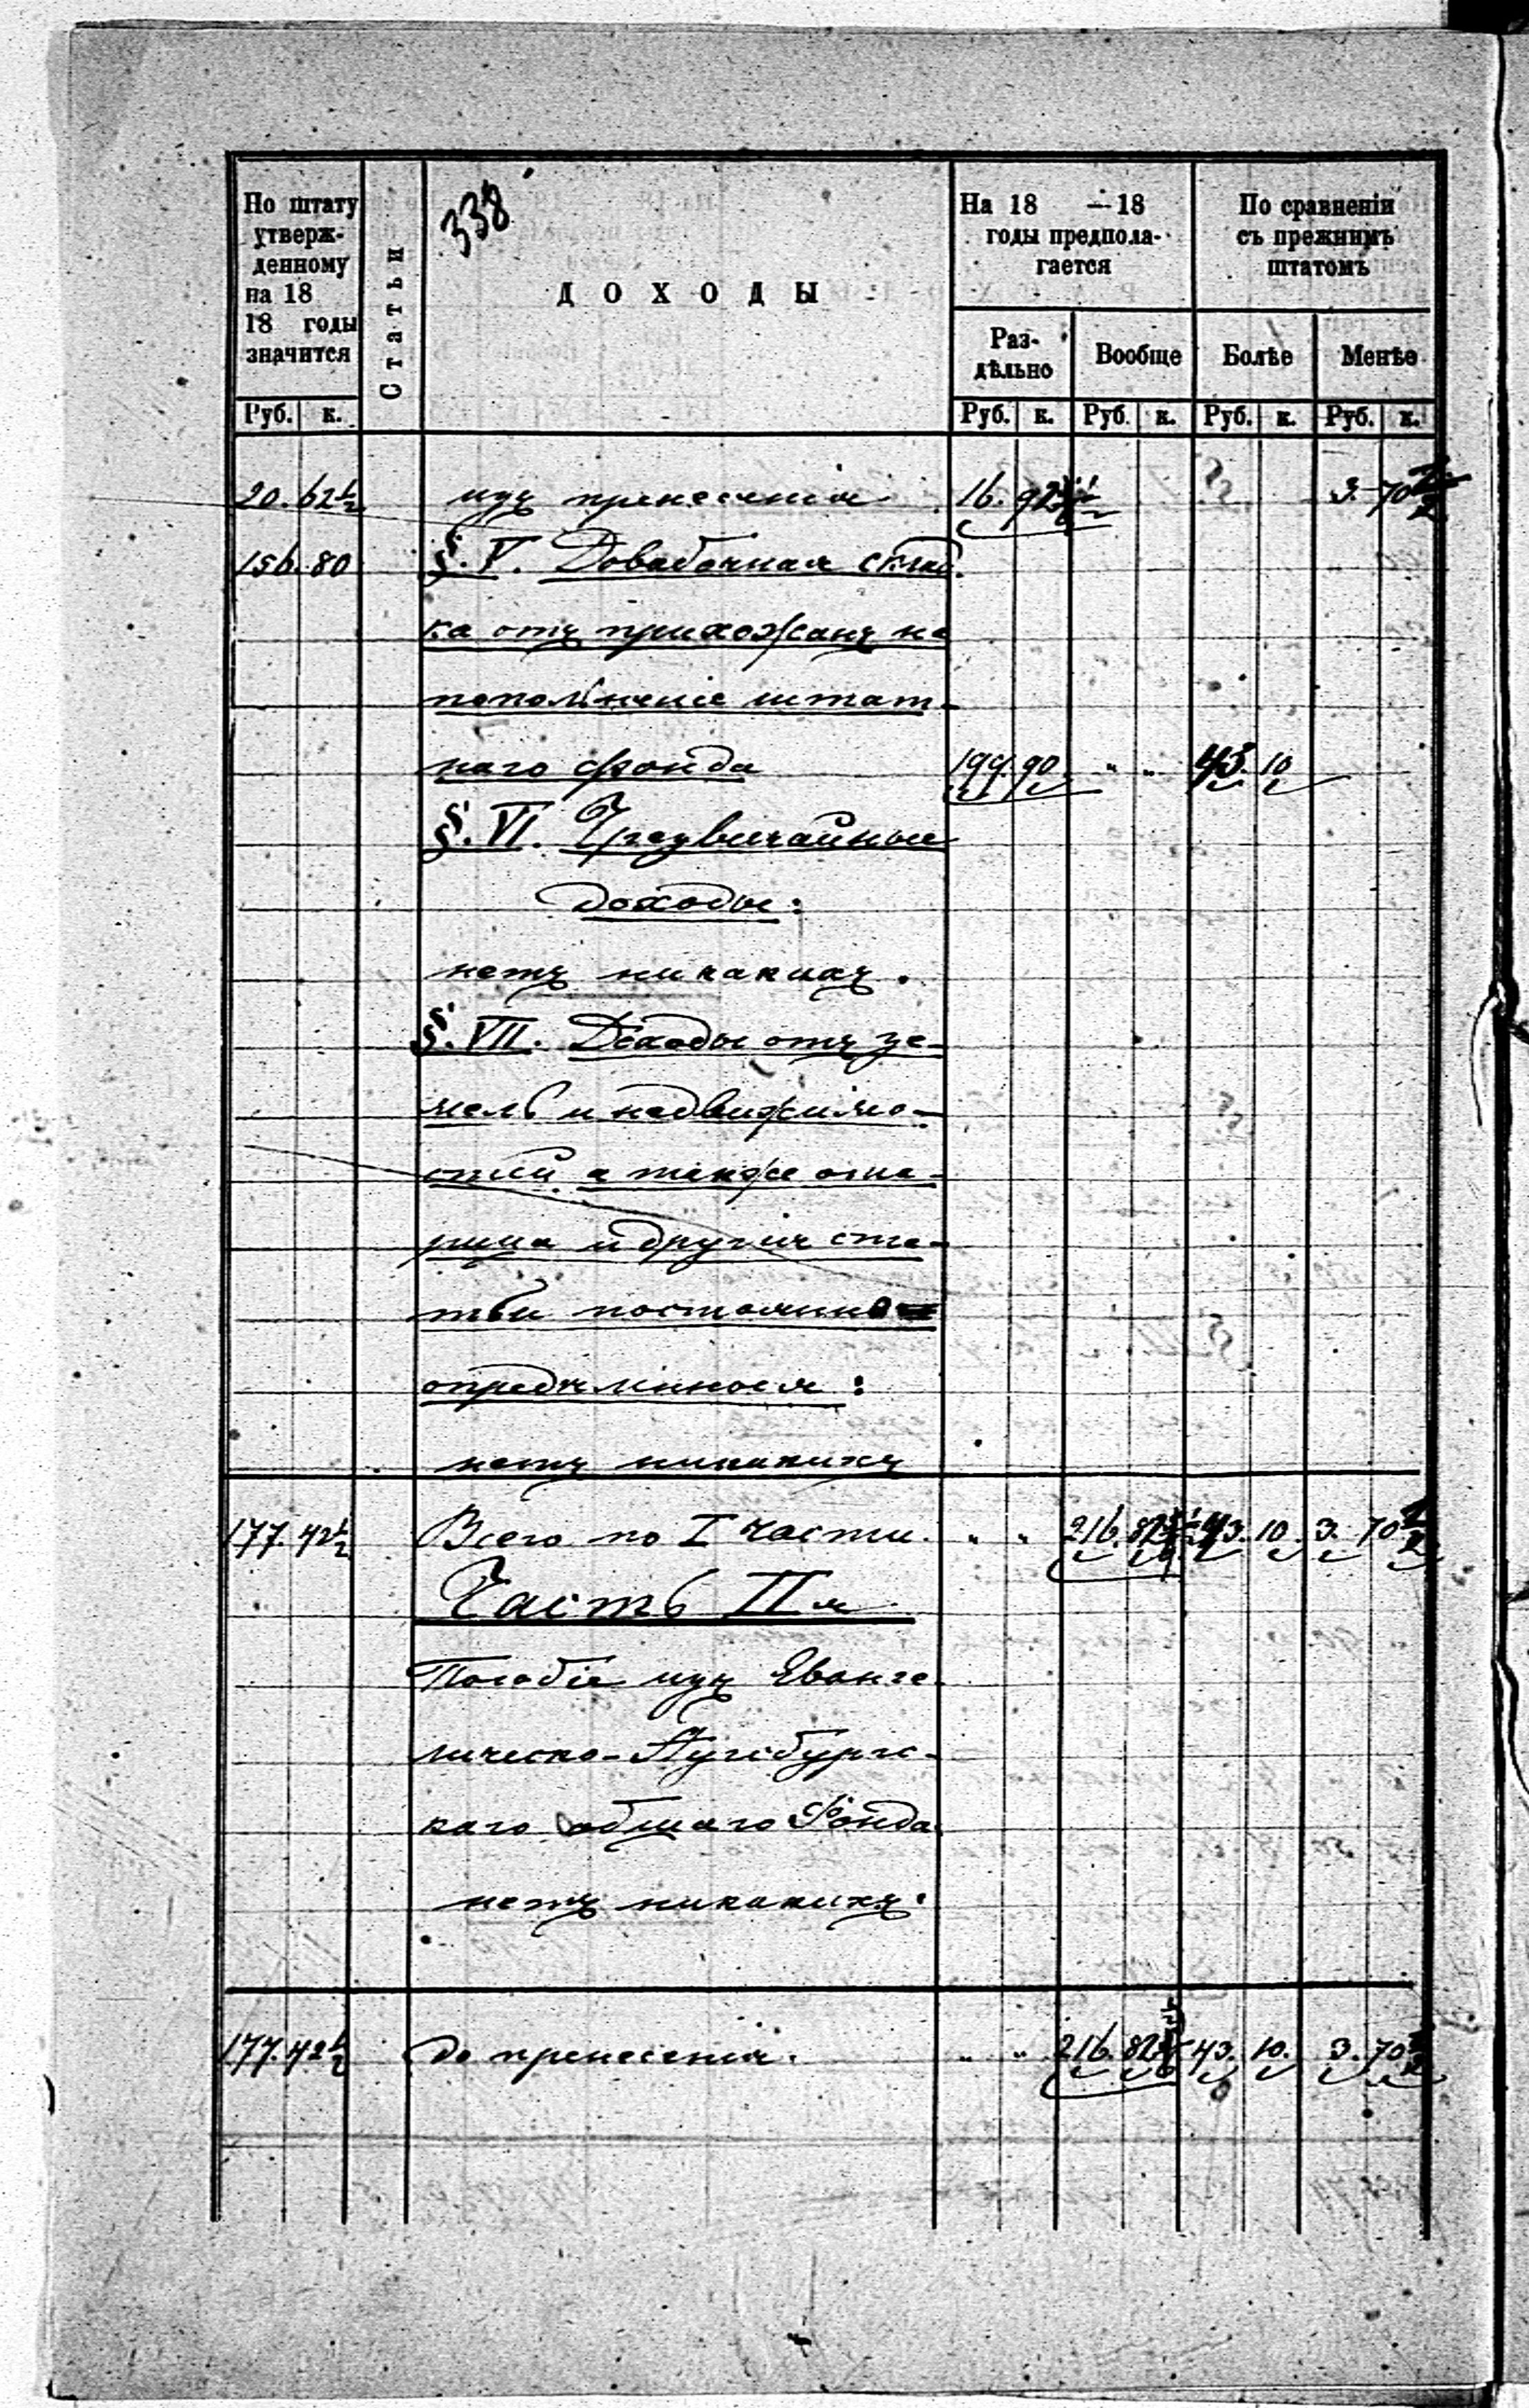 338
По штату
утверж-
денному
на 18
18 годы
значится
Статьи
ДОХОДЫ
На 18 — 18
годы предпола-
гается
По сравненіи
съ прежнимъ
штатомъ
Раз-
дѣльно
Вообще
Болѣе
Менѣе
Руб. к. Руб. к. Руб. к. Руб. к. Руб. к.
20. 62½ изъ пренесенія 16. 92 3. 70
156. 80 §. V. Довабочная склад
ка отъ прихожанъ на
пополненіе штат-
наго фонда 199. 90. " " 43. 10
§. VI. Чрезвычайные
доходы:
нетъ никакихъ.
§. VII. Доходы отъ зе-
мель и недвижимо-
стей а также
и другія ста-
тьи постоянно
определенныя:
нетъ никакихъ
177. 42½ Всего по I части. " " 216. 82 43. 10. 3. 70
Часть II я
Пособіе изъ Еванге
лическо-Аугсбургс-
каго общаго Фонда
нетъ никакихъ.
177. 42½ до пренесенія. " " 216. 82 43. 10. 3. 70